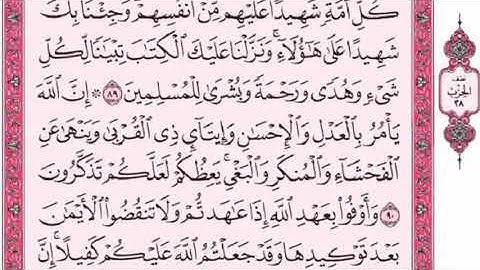 كُلِّ أُمَّةٍ شَهِيدًا عَلَيْهِم مِّنْ أَنفُسِهِمْ وَجِئْنَا بِكَ
شَهِيدًا عَلَىٰ هَٰٓؤُلَآءِ ۚ وَنَزَّلْنَا عَلَيْكَ ٱلْكِتَٰبَ تِبْيَٰنًا لِّكُلِّ
شَىْءٍ وَهُدًى وَرَحْمَةً وَبُشْرَىٰ لِلْمُسْلِمِينَ ٨٩ ۞ إِنَّ ٱللَّهَ
يَأْمُرُ بِٱلْعَدْلِ وَٱلْإِحْسَٰنِ وَإِيتَآئِ ذِى ٱلْقُرْبَىٰ وَيَنْهَىٰ عَنِ
ٱلْفَحْشَآءِ وَٱلْمُنكَرِ وَٱلْبَغْىِ ۚ يَعِظُكُمْ لَعَلَّكُمْ تَذَكَّرُونَ
٩٠ وَأَوْفُوا۟ بِعَهْدِ ٱللَّهِ إِذَا عَٰهَدتُّمْ وَلَا تَنقُضُوا۟ ٱلْأَيْمَٰنَ
بَعْدَ تَوْكِيدِهَا وَقَدْ جَعَلْتُمُ ٱللَّهَ عَلَيْكُمْ كَفِيلًا ۚ إِنَّ
نصف
الحزب
٢٨